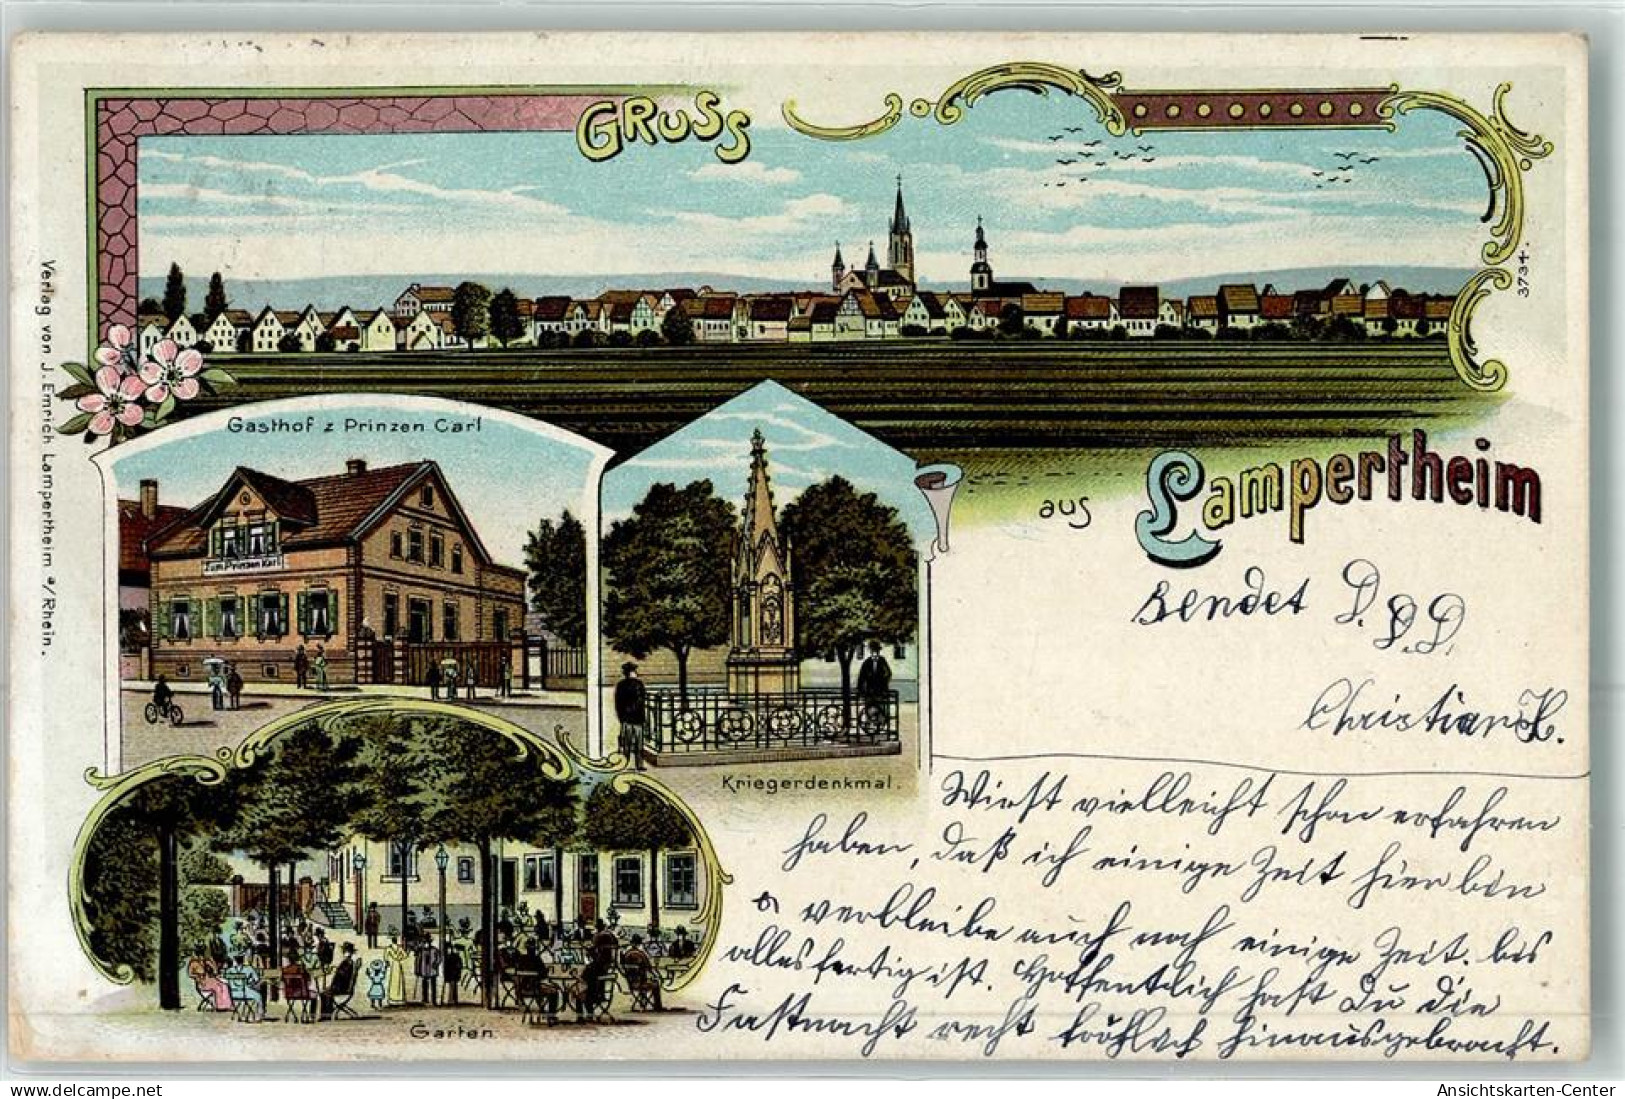 GRUSS
3734.
Verlag von J. Emrich Lampertheim a/Rhein.
Gasthof z Prinzen Carl
Zum Prinzen Karl
aus Lampertheim
sendet D. D. D.
Christian K.
Kriegerdenkmal.
Wirst vielleicht schon erfahren
haben, daß ich einige Zeit hier bin
u verbleibe auch noch einige Zeit. bis
alles fertig ist. Hoffentlich hast Du die
Fastnacht recht fröhlich hinausgebracht.
Garten
www.delcampe.net / tik77de
Ansichtskarten-Center